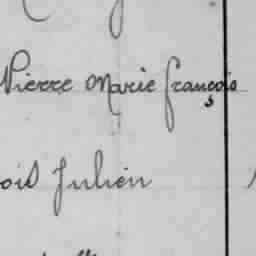 Pierre Marie françois
ois Julien